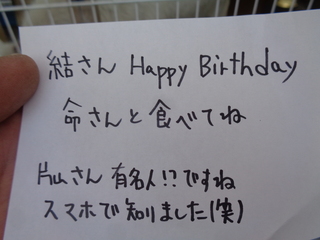 結さん Happy Birthday
命さんと食べてね
Huさん 有名人!?ですね
スマホで知りました(笑)